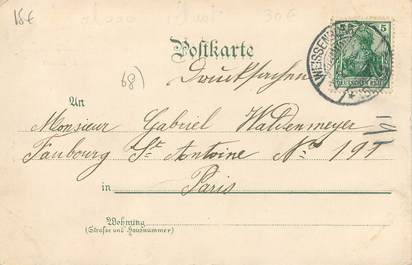 15€ 30€
5
Postkarte
WEISSEN
DEUTSCHES REICH
68)
Drucksachen
An
Monsieur Gabriel Waldenmeyer
Faubourg St. Antoine No 191
in Paris
Wohnung
(Straße und Hausnummer)